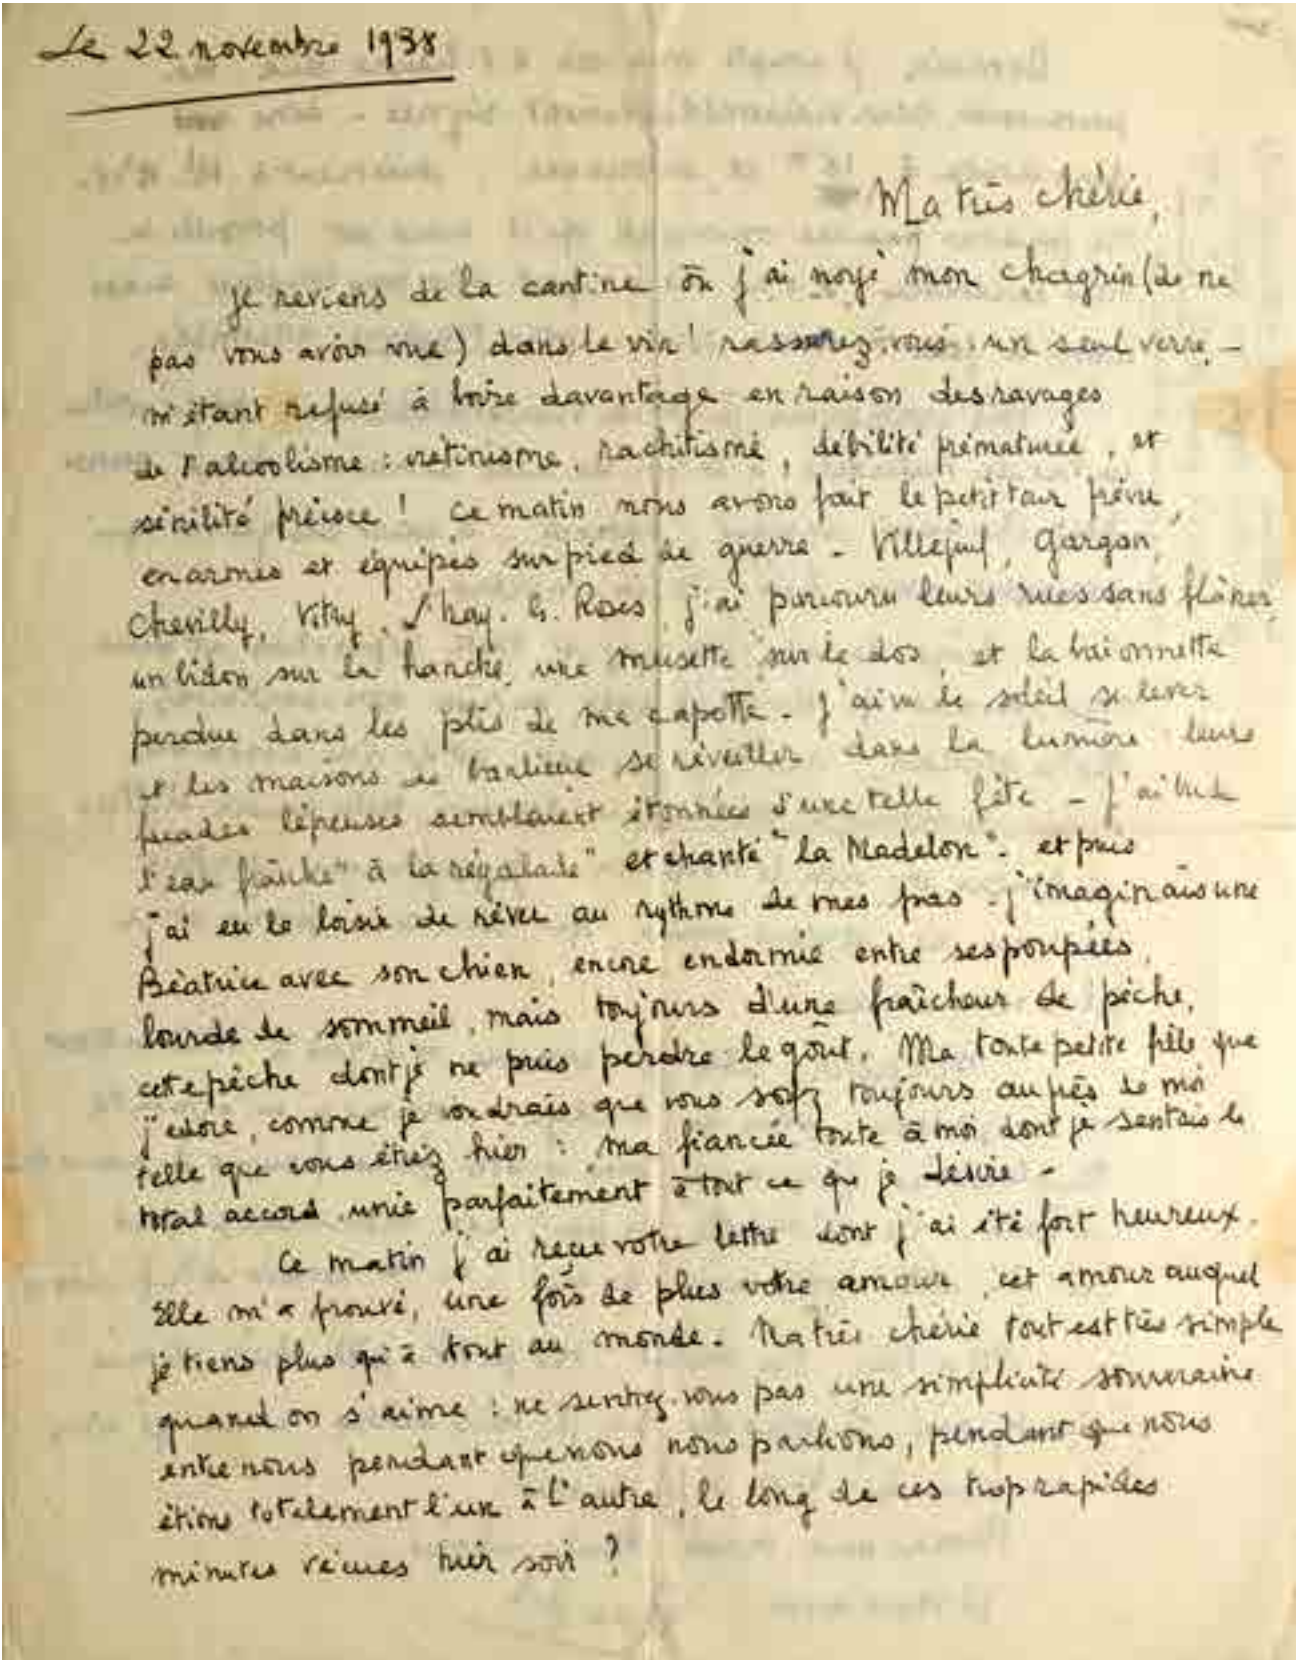 Le 22 novembre 1938
Ma très chérie,
Je reviens de la cantine où j'ai noyé mon chagrin (de ne
pas vous avoir vue) dans le vin! rassurez-vous: un seul verre, -
m'étant refusé à boire davantage en raison des ravages
de l'alcoolisme : crétinisme, rachitisme, débilité prématurée, et
sénilité précoce! Ce matin nous avons fait le petit tour prévu,
en armes et équipés sur pied de guerre - Villejuif, Gargan,
Chevilly, Vitry, L'Hay. les. Roses, j'ai parcouru leurs rues sans flâner,
un bidon sur la hanche, une musette sur le dos, et la baïonnette
perdue dans les plis de ma capotte - J'ai vu le soleil se lever
et les maisons de banlieue se réveiller dans la lumière leurs
facades lépreuses semblaient étonnées d'une telle fête - J'ai bu de
l'eau fraîche "à la régalade" et chanté "la Madelon". et puis
j'ai eu le loisir de rêver au rythme de mes pas - j'imaginais une
Béatrice avec son chien, encore endormie entre ses poupées,
lourde de sommeil, mais toujours d'une fraîcheur de pêche,
cette pêche dont je ne puis perdre le goût. Ma toute petite fille que
j'adore, comme je voudrais que vous soyez toujours auprès de moi
telle que vous étiez hier : ma fiancée toute à moi, dont je sentais le
total accord, unie parfaitement à tout ce que je désire -
Ce matin j'ai reçu votre lettre dont j'ai été fort heureux.
Elle m'a prouvé, une fois de plus votre amour, cet amour auquel
je tiens plus qu'à tout au monde. Ma très chérie tout est très simple
quand on s'aime : ne sentez-vous pas une simplicité souveraine
entre nous pendant que nous nous parlions, pendant que nous
étions totalement l'un à l'autre, le long de ces trop rapides
minutes vécues hier soir ?